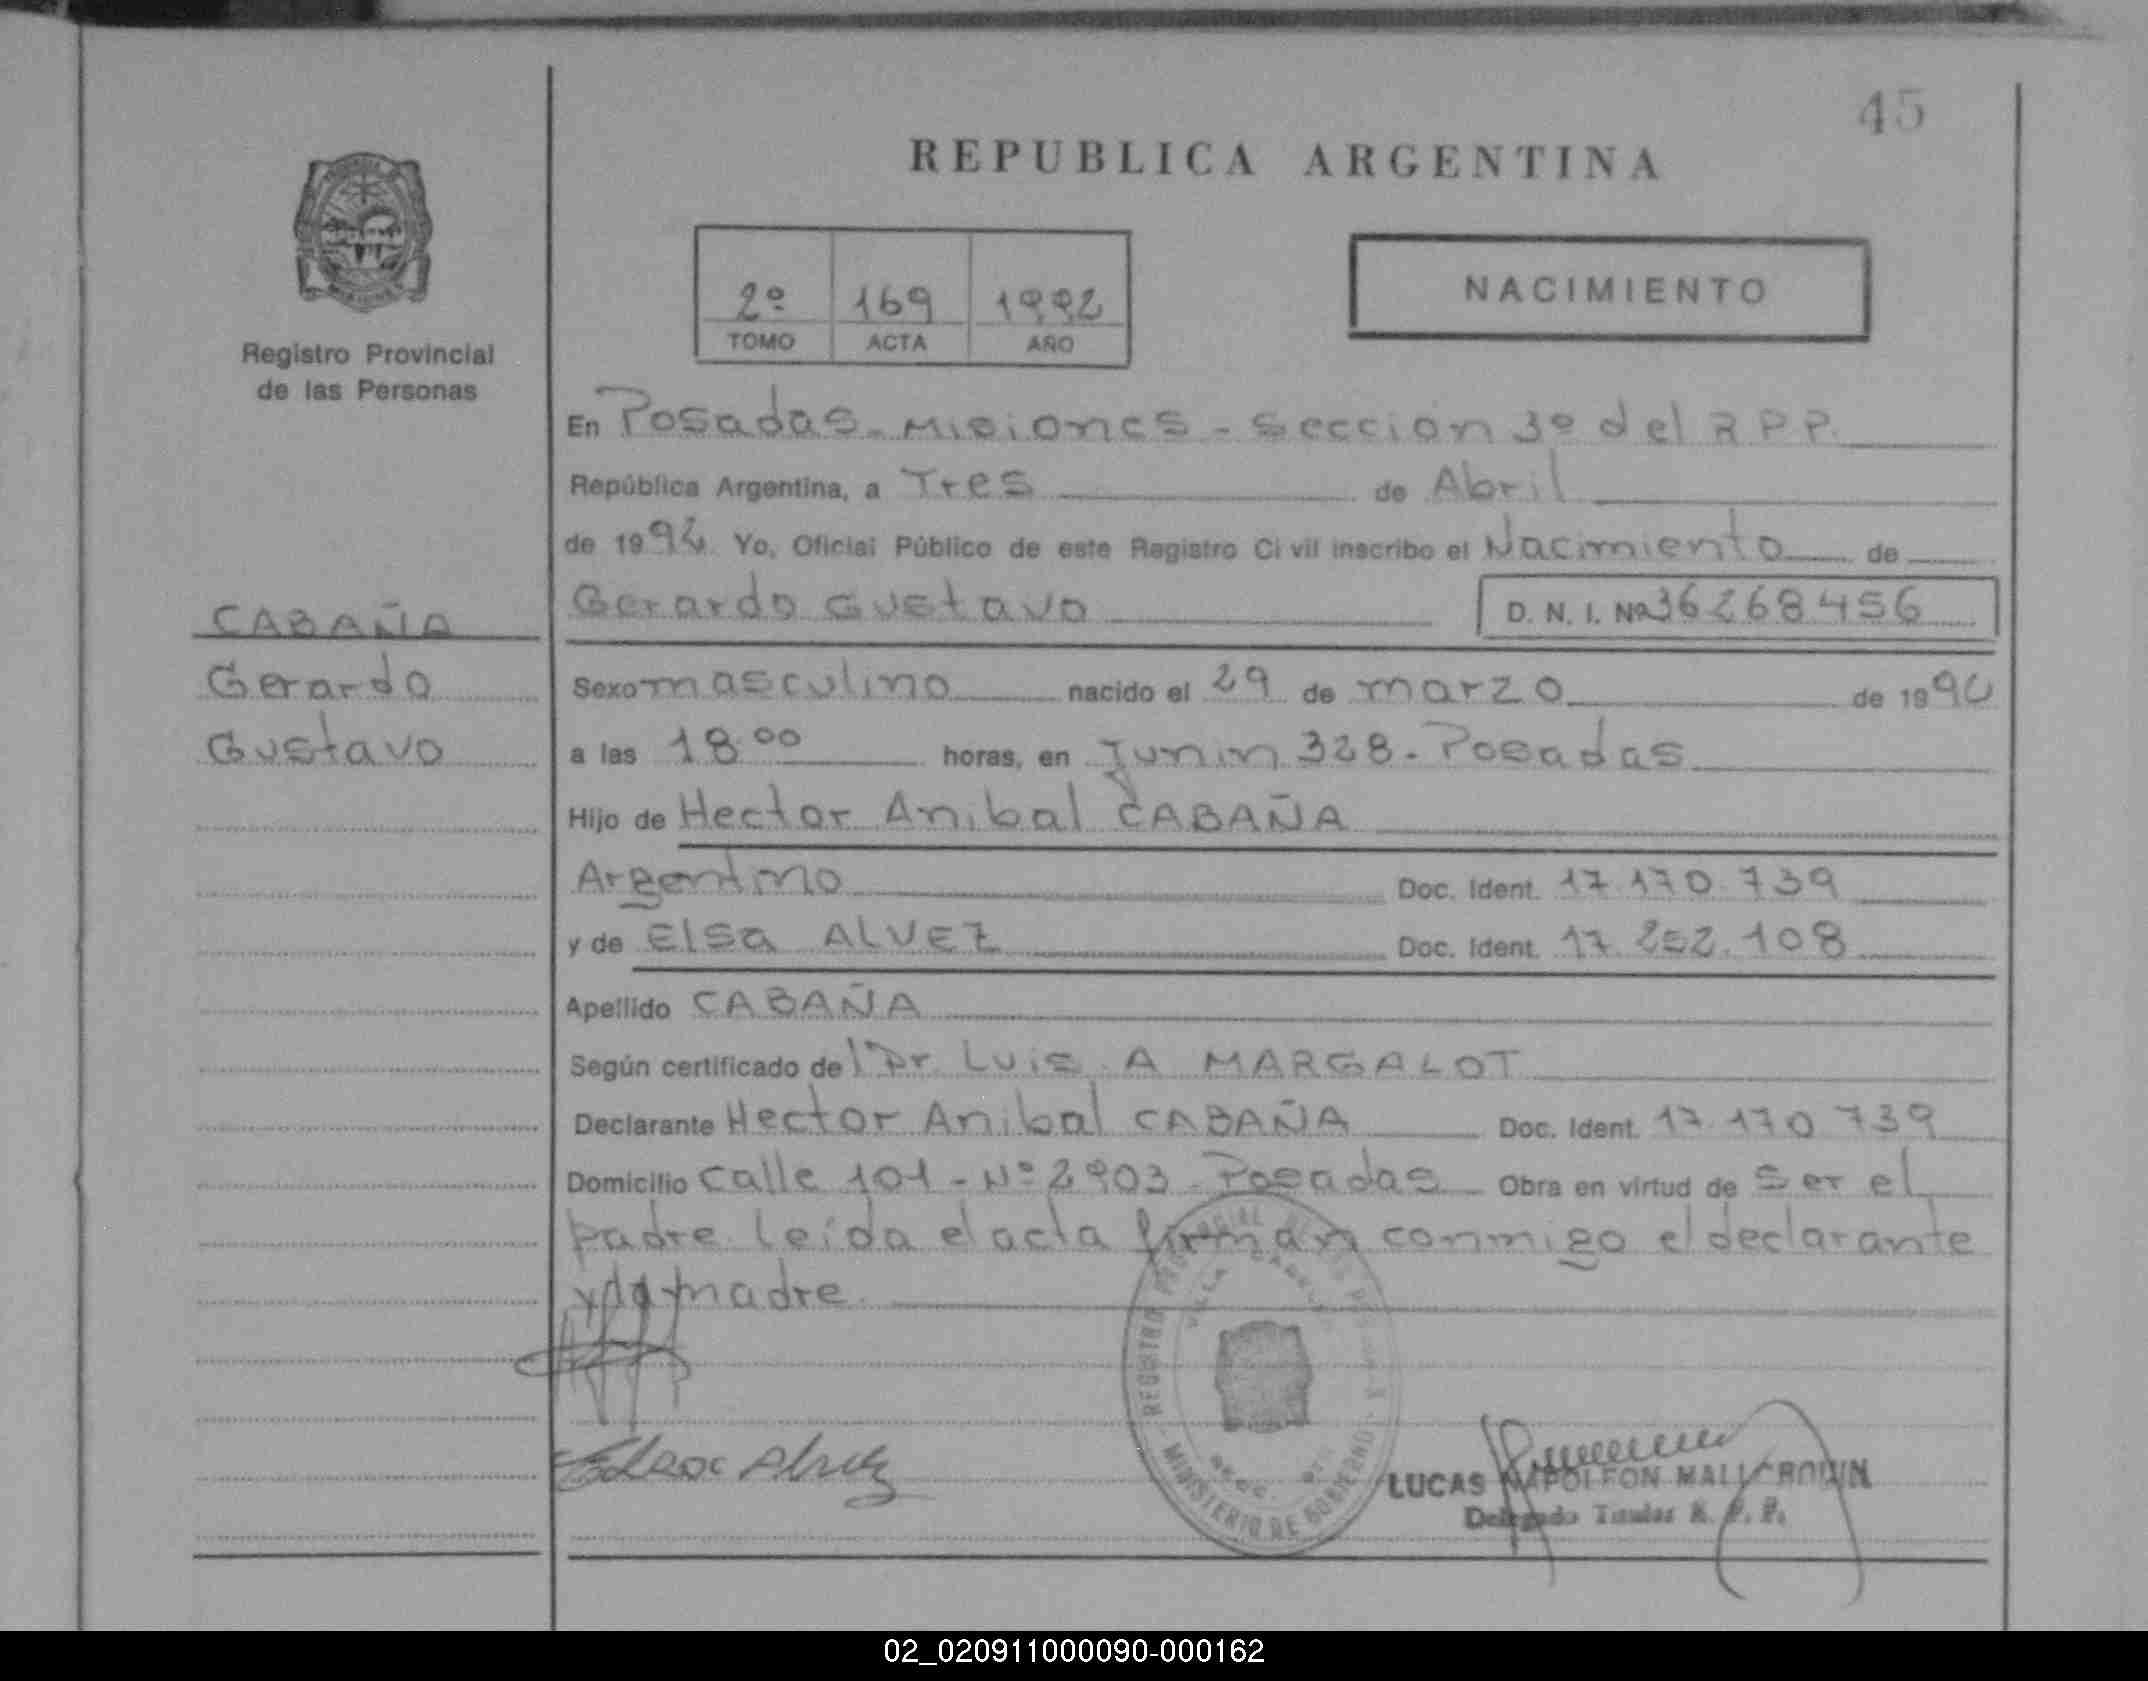 45
REPUBLICA ARGENTINA
2º 169 1992
TOMO ACTA AÑO
NACIMIENTO
Registro Provincial
de las Personas
En Posadas - Misiones - Sección 3º del R P P.
República Argentina, a Tres de Abril
de 1992 Yo, Oficial Público de este Registro Civil inscribo el Nacimiento de
Gerardo Gustavo D. N. I. Nº 36268456
CABAÑA
Gerardo
Gustavo
Sexo masculino nacido el 29 de marzo de 1990
a las 18.00 horas, en Junin 328 - Posadas
Hijo de Hector Anibal CABAÑA
Argentino Doc. Ident. 17.170.739
y de Elsa ALVEZ Doc. Ident. 17.252.108
Apellido CABAÑA
Según certificado del Dr. Luis A MARGALOT
Declarante Hector Anibal CABAÑA Doc. Ident. 17.170 739
Domicilio calle 101 - Nº 2903 - Posadas Obra en virtud de ser el
padre. leída el acta firman conmigo el declarante
y la madre.
REGISTRO PROVINCIAL DE LAS PERSONAS
VILLA
MINISTERIO DE GOBIERNO
Elsa Alvez
LUCAS NAPOLEON
Delegado Titular R. P. P.
02_020911000090-000162